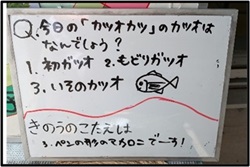 Q.今日の「カツオカツ」のカツオは
なんでしょう？
1. 初ガツオ 2. もどりガツオ
3. いそのカツオ
きのうのこたえは
3. ペンの形のマカロニでーす！